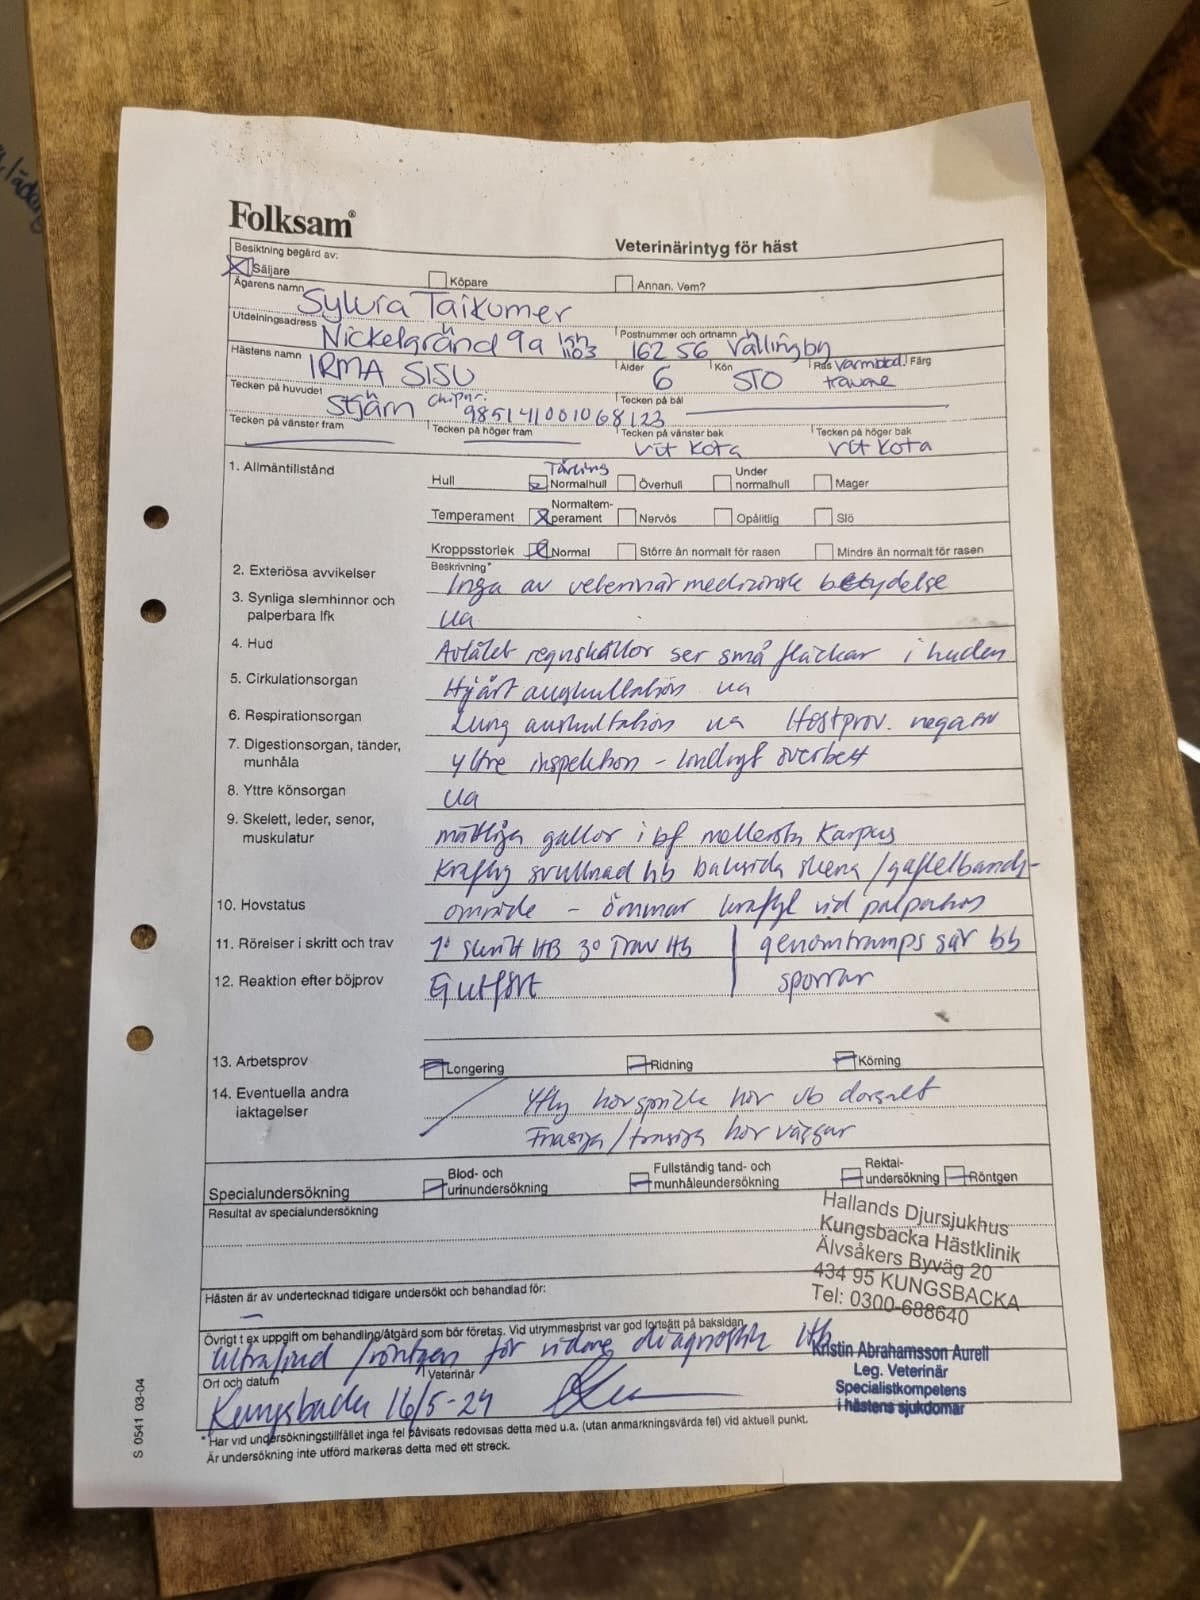 Folksam®
Veterinärintyg för häst
Besiktning begärd av:
Säljare Köpare Annan. Vem?
Ägarens namn Sylvia Taikumer
Utdelningsadress Nickelgränd 9a lgh 1103 Postnummer och ortnamn 162 56 Vällingby
Hästens namn IRMA SISU Ålder 6 Kön STO Ras Varmblod. travare Färg
Tecken på huvudet Stjärn chipnr. 985141001068123 Tecken på bål
Tecken på vänster fram Tecken på höger fram Tecken på vänster bak vit kota Tecken på höger bak vit kota
1. Allmäntillstånd
Hull Tävling Normalhull Överhull Under normalhull Mager
Temperament Normaltem-perament Nervös Opålitlig Slö
Kroppsstorlek Normal Större än normalt för rasen Mindre än normalt för rasen
Beskrivning*
2. Exteriösa avvikelser Inga av veterinärmedicinsk betydelse
3. Synliga slemhinnor och
palperbara lfk ua
4. Hud Avläkt regnskållor ser små fläckar i huden
5. Cirkulationsorgan Hjärt auskultation ua
6. Respirationsorgan Lung auskultation ua Hostprov. negativ
7. Digestionsorgan, tänder,
munhåla yttre inspektion - lindrigt överbett
8. Yttre könsorgan ua
9. Skelett, leder, senor,
muskulatur måttliga gallor i bf mellersta Karpus
Kraftig svullnad hb baksida skena /gaffelbands-
10. Hovstatus område - ömmar kraftigt vid palpation
11. Rörelser i skritt och trav 1° skritt HB 3° Trav Hb genomtramps sår bb
12. Reaktion efter böjprov Ej utfört sporrar
13. Arbetsprov Longering Ridning Körning
14. Eventuella andra
iaktagelser Ytlig hovspricka hov vb dorsalt
Frasiga/trasiga hov väggar
Specialundersökning Blod- och urinundersökning Fullständig tand- och munhåleundersökning Rektal-undersökning Röntgen
Resultat av specialundersökning
Hallands Djursjukhus
Kungsbacka Hästklinik
Älvsåkers Byväg 20
434 95 KUNGSBACKA
Tel: 0300-688640
Hästen är av undertecknad tidigare undersökt och behandlad för:
Övrigt t ex uppgift om behandling/åtgärd som bör företas. Vid utrymmesbrist var god fortsätt på baksidan.
Ultraljud /röntgen för vidare diagnostik Hb
Kristin Abrahamsson Aurell
Leg. Veterinär
Specialistkompetens
i hästens sjukdomar
Ort och datum Veterinär
Kungsbacka 16/5-24
* Har vid undersökningstillfället inga fel påvisats redovisas detta med u.a. (utan anmärkningsvärda fel) vid aktuell punkt.
Är undersökning inte utförd markeras detta med ett streck.
S 0541 03-04